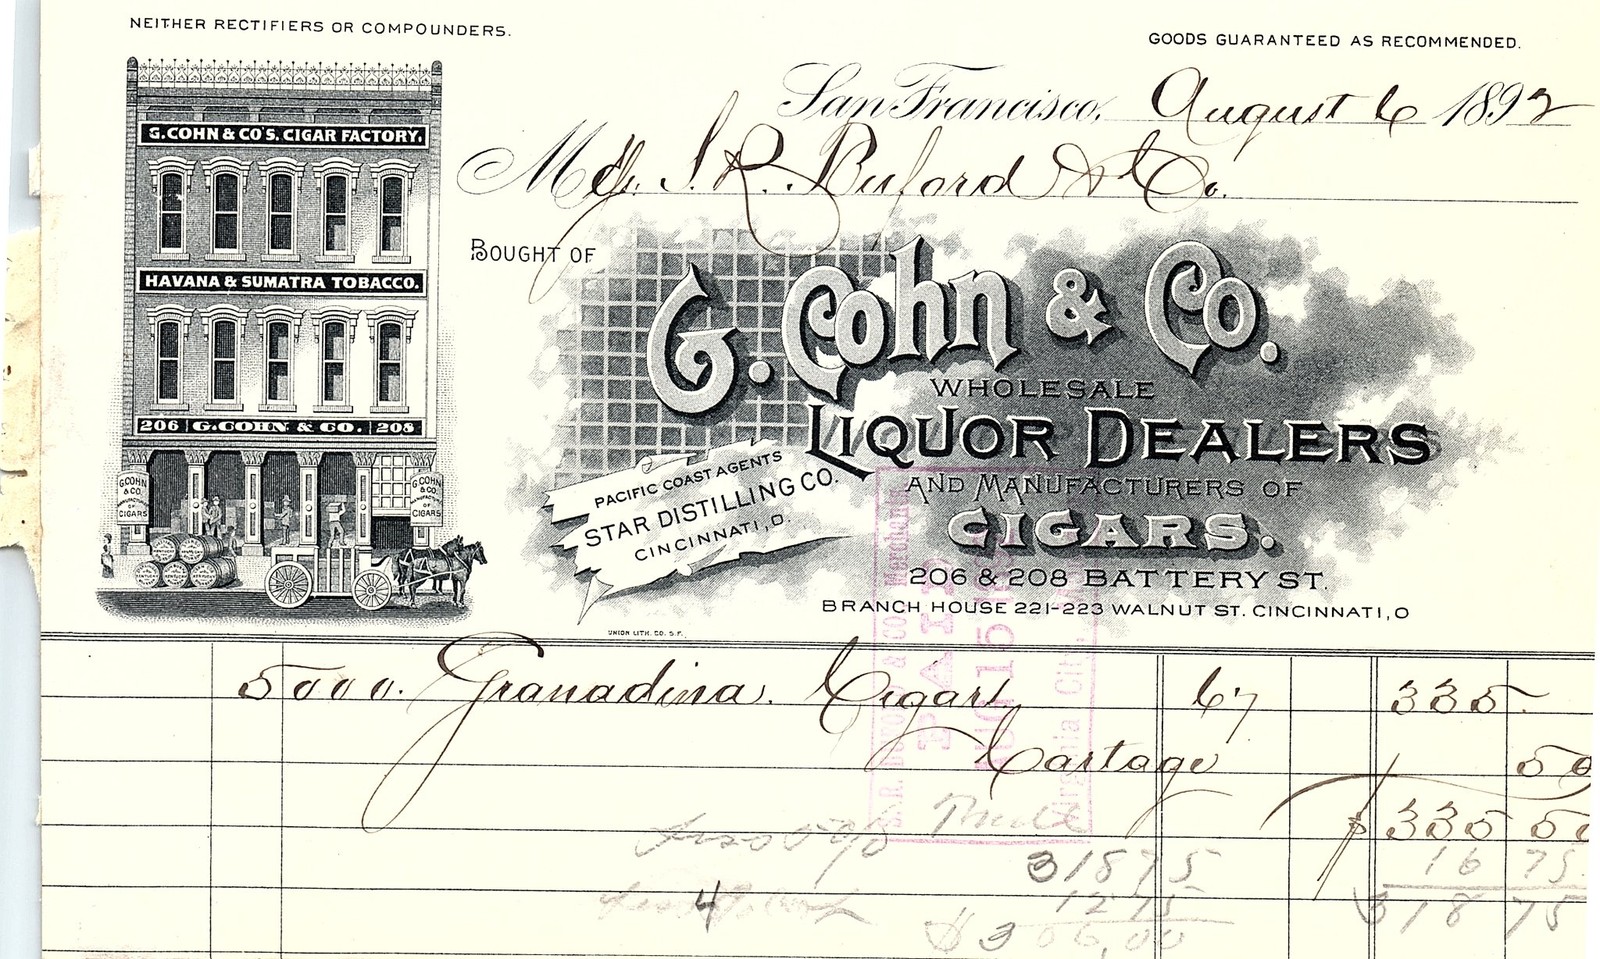 NEITHER RECTIFIERS OR COMPOUNDERS.
GOODS GUARANTEED AS RECOMMENDED.
San Francisco, August 6 1892
S. R. Buford & Co.
BOUGHT OF
G. Cohn & Co.
WHOLESALE
LIQUOR DEALERS
AND MANUFACTURERS OF
CIGARS.
206 & 208 BATTERY ST.
BRANCH HOUSE 221-223 WALNUT ST. CINCINNATI, O
PACIFIC COAST AGENTS
STAR DISTILLING CO.
CINCINNATI, O.
G. COHN & CO'S. CIGAR FACTORY.
HAVANA & SUMATRA TOBACCO.
206 G. COHN & CO. 208
G. COHN & CO. MANUFACTURERS OF CIGARS
G. COHN & CO. MANUFACTURERS OF CIGARS
UNION LITH. CO. S.F.
S.R. BUFORD & CO. Merchants
PAID
AUG 15 18
Virginia City,
5000. Granadina. Cigars 67 335.
Cartage 50
$ 335 50
Less 5 % 16 75
31875 $ 318 75
Less 4
1275
$306,00